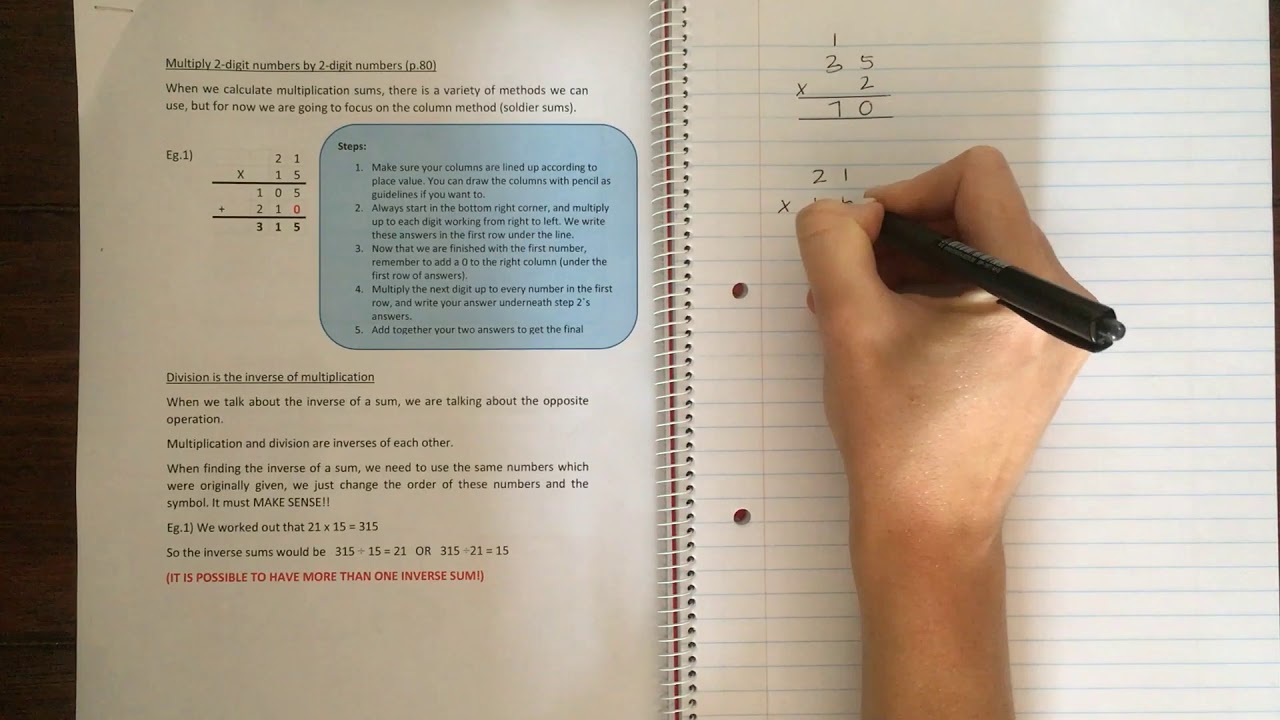 Multiply 2-digit numbers by 2-digit numbers (p.80)
When we calculate multiplication sums, there is a variety of methods we can
use, but for now we are going to focus on the column method (soldier sums).
Eg.1)
2 1
X 1 5
1 0 5
+ 2 1 0
3 1 5
Steps:
1. Make sure your columns are lined up according to
place value. You can draw the columns with pencil as
guidelines if you want to.
2. Always start in the bottom right corner, and multiply
up to each digit working from right to left. We write
these answers in the first row under the line.
3. Now that we are finished with the first number,
remember to add a 0 to the right column (under the
first row of answers).
4. Multiply the next digit up to every number in the first
row, and write your answer underneath step 2`s
answers.
5. Add together your two answers to get the final
Division is the inverse of multiplication
When we talk about the inverse of a sum, we are talking about the opposite
operation.
Multiplication and division are inverses of each other.
When finding the inverse of a sum, we need to use the same numbers which
were originally given, we just change the order of these numbers and the
symbol. It must MAKE SENSE!!
Eg.1) We worked out that 21 x 15 = 315
So the inverse sums would be 315 ÷ 15 = 21 OR 315 ÷21 = 15
(IT IS POSSIBLE TO HAVE MORE THAN ONE INVERSE SUM!)
1
3 5
x 2
7 0
2 1
x